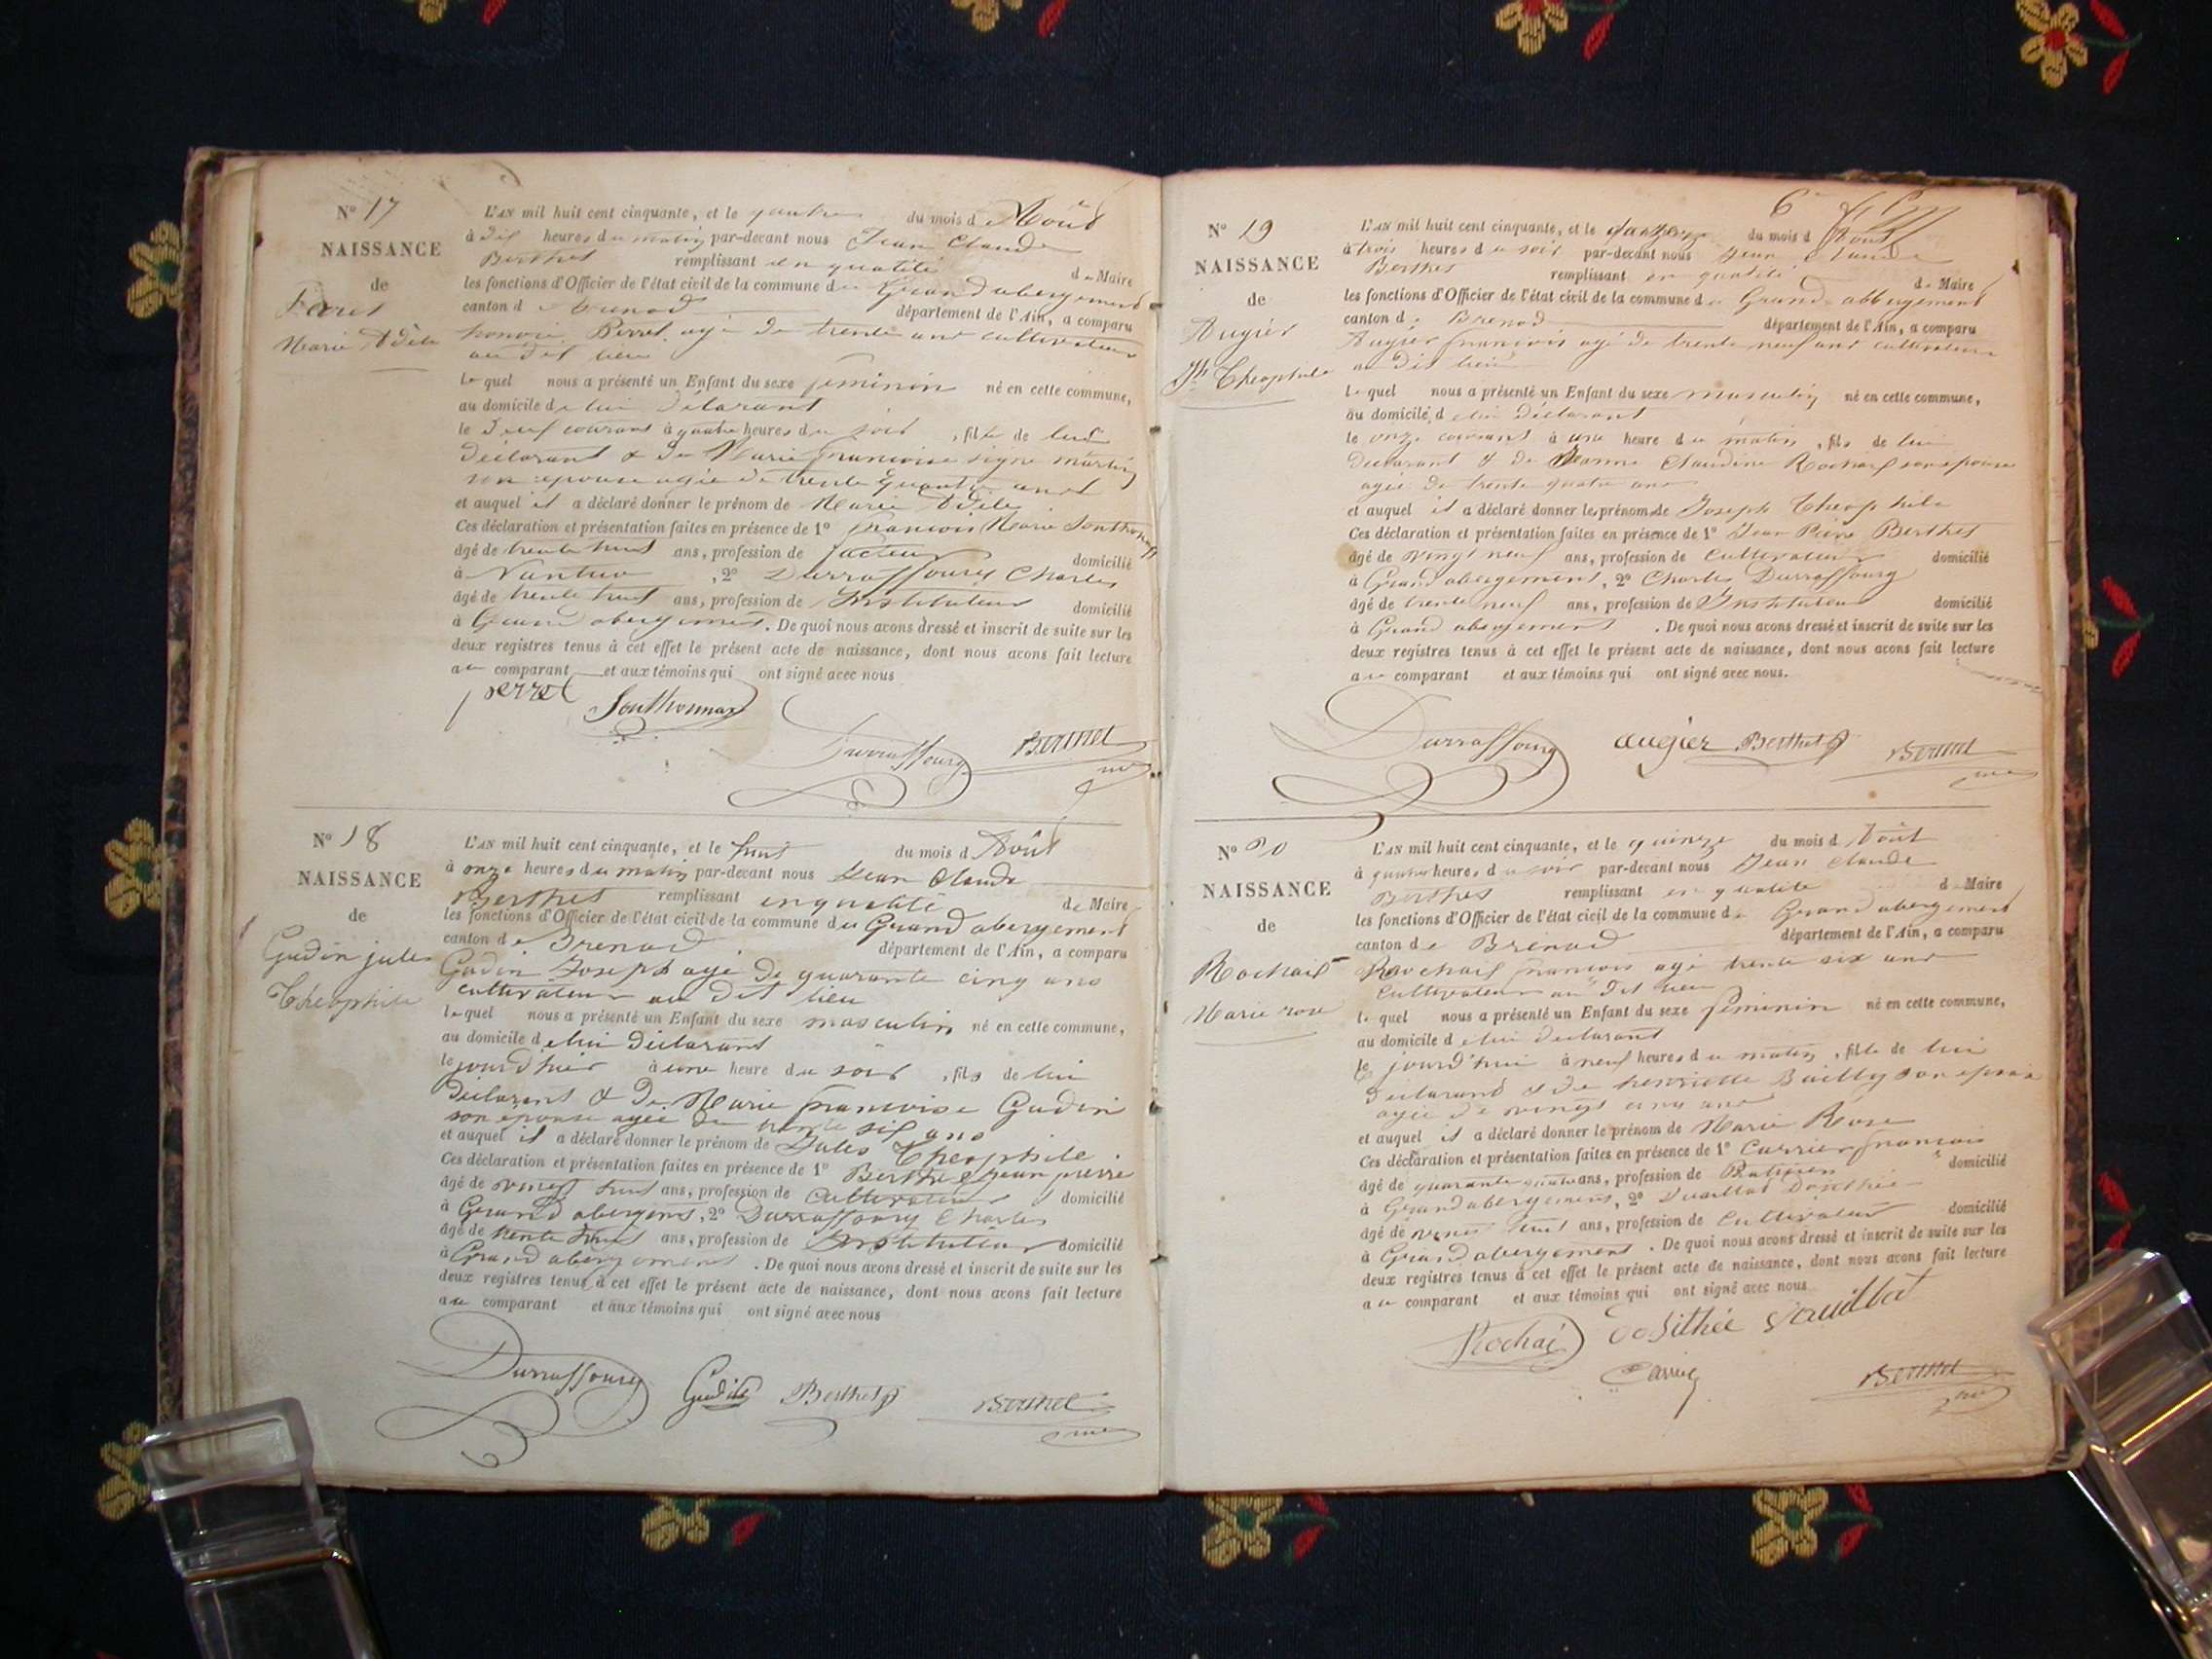 N° 17
NAISSANCE
de
Marie Adèle
L'AN mil huit cent cinquante, et le quatre du mois d Août
à dix heures du matin par-devant nous Jean Claude
Berthet remplissant en qualité de Maire
les fonctions d'Officier de l'état civil de la commune du Grand abergement
canton de Brenod département de l'Ain, a comparu
honoré Perret agé de trente ans cultivateur
au dit lieu
lequel nous a présenté un Enfant du sexe feminin né en cette commune,
au domicile de lui déclarant
le courant à quatre heures du soir , fille de lui
déclarant & de Marie françoise martin
son épouse agée de trente quatre ans
et auquel il a déclaré donner le prénom de Marie Adèle
Ces déclaration et présentation faites en présence de 1° francois Marie Sonthonnax
âgé de trente huit ans, profession de facteur domicilié
à Nantua , 2° Durraffourg Charles
âgé de trente huit ans, profession de Instituteur domicilié
à Grand abergement . De quoi nous avons dressé et inscrit de suite sur les
deux registres tenus à cet effet le présent acte de naissance, dont nous avons fait lecture
au comparant et aux témoins qui ont signé avec nous
perret Sonthonnax
Durraffourg Berthet
N° 18
NAISSANCE
de
Gudin jules
Théophile
L'AN mil huit cent cinquante, et le huit du mois d Août
à onze heures du matin par-devant nous Jean Claude
Berthet remplissant en qualité de Maire
les fonctions d'Officier de l'état civil de la commune du Grand abergement
canton de Brenod département de l'Ain, a comparu
Gudin Joseph agé de quarante cinq ans
cultivateur au dit lieu
lequel nous a présenté un Enfant du sexe masculin né en cette commune,
au domicile de lui déclarant
le jourd'hier à une heure du soir , fils de lui
déclarant & de Marie francoise Gudin
son épouse agée de trente six ans
et auquel il a déclaré donner le prénom de Jules Théophile
Ces déclaration et présentation faites en présence de 1° Berthet jean pierre
âgé de vingt huit ans, profession de Cultivateur domicilié
à Grand abergemt, 2° Durraffourg Charles
âgé de trente huit ans, profession de Instituteur domicilié
à Grand abergement . De quoi nous avons dressé et inscrit de suite sur les
deux registres tenus à cet effet le présent acte de naissance, dont nous avons fait lecture
au comparant et aux témoins qui ont signé avec nous
Durraffourg Gudin Berthet Berthet
6
N° 19
NAISSANCE
de
Augier
Jh Théophile
L'AN mil huit cent cinquante, et le du mois d Août
à trois heures du soir par-devant nous Jean Claude
Berthet remplissant en qualité de Maire
les fonctions d'Officier de l'état civil de la commune du Grand abbergement
canton de Brenod département de l'Ain, a comparu
Augier francois agé de trente neuf ans cultivateur
au dit lieu
lequel nous a présenté un Enfant du sexe masculin né en cette commune,
au domicile de lui déclarant
le onze courant à une heure du matin , fils de lui
déclarant & de Jeanne Claudine Rochaix son épouse
agée de trente quatre ans
et auquel il a déclaré donner les prénoms de Joseph Théophile
Ces déclaration et présentation faites en présence de 1° Jean Pierre Berthet
âgé de vingt neuf ans, profession de Cultivateur domicilié
à Grand abergement, 2° Charles Durraffourg
âgé de trente neuf ans, profession de Instituteur domicilié
à Grand abergement . De quoi nous avons dressé et inscrit de suite sur les
deux registres tenus à cet effet le présent acte de naissance, dont nous avons fait lecture
au comparant et aux témoins qui ont signé avec nous.
Durraffourg augier Berthet Berthet
N° 20
NAISSANCE
de
Rochaix
Marie rose
L'AN mil huit cent cinquante, et le quinze du mois d Août
à quatre heures du soir par-devant nous Jean Claude
Berthet remplissant en qualité de Maire
les fonctions d'Officier de l'état civil de la commune du Grand abergement
canton de Brenod département de l'Ain, a comparu
Rochaix francois agé trente six ans
Cultivateur au dit lieu
lequel nous a présenté un Enfant du sexe feminin né en cette commune,
au domicile de lui déclarant
le jourd'hui à neuf heures du matin , fille de lui
déclarant & de henriette Bailly son epouse
agée de vingt cinq ans
et auquel il a déclaré donner le prénom de Marie Rose
Ces déclaration et présentation faites en présence de 1° Carrier francois
âgé de quarante quatre ans, profession de domicilié
à Grand abergement, 2° Dosithée
âgé de vingt huit ans, profession de Cultivateur domicilié
à Grand abergement . De quoi nous avons dressé et inscrit de suite sur les
deux registres tenus à cet effet le présent acte de naissance, dont nous avons fait lecture
au comparant et aux témoins qui ont signé avec nous
Rochai Dosithée
Carrier Berthet